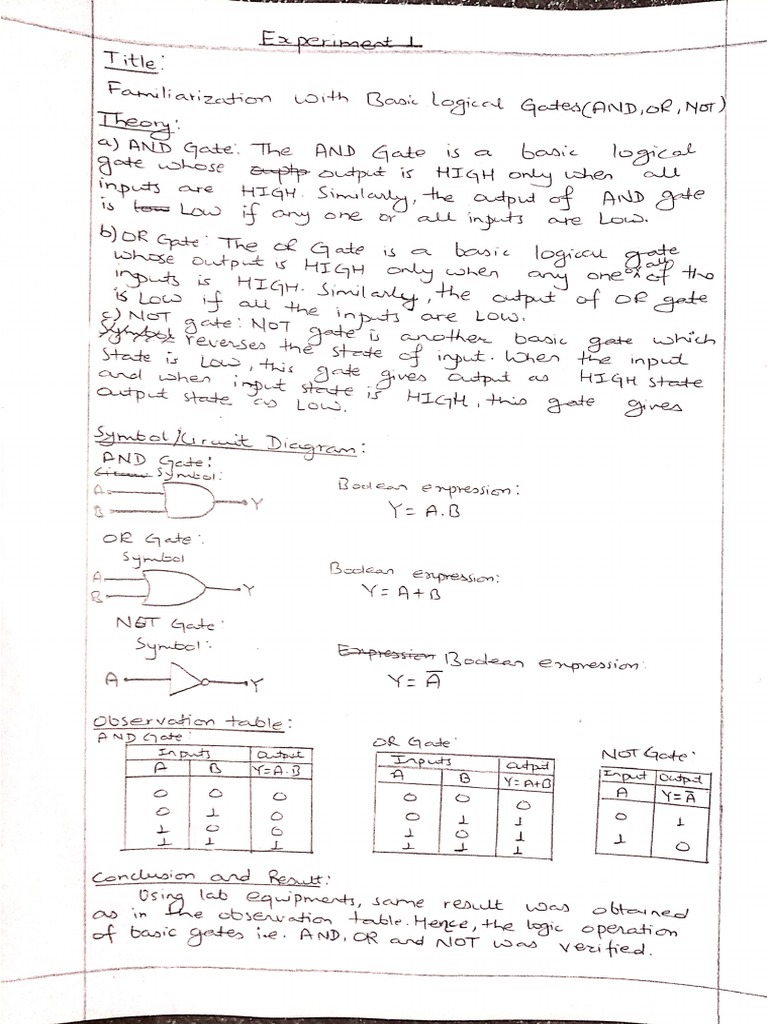 Experiment 1
Title:
Familiarization with Basic Logical Gates (AND, OR, NOT)
Theory:
a) AND Gate: The AND Gate is a basic logical
gate whose output is HIGH only when all
inputs are HIGH. Similarly, the output of AND gate
is Low if any one or all inputs are Low.
b) OR Gate: The OR Gate is a basic logical gate
whose output is HIGH only when any one or all of the
inputs is HIGH. Similarly, the output of OR gate
is Low if all the inputs are Low.
c) NOT gate: NOT gate is another basic gate which
reverses the state of input. When the input
state is Low, this gate gives output as HIGH state
and when input state is HIGH, this gate gives
output state as Low.
Symbol/Circuit Diagram:
AND Gate:
Symbol:
A
B
Y
Boolean expression:
Y = A.B
OR Gate:
Symbol
A
B
Y
Boolean expression:
Y = A+B
NOT Gate:
Symbol:
A
Y
Boolean expression:
Y = A̅
Observation table:
AND Gate:
Inputs Output
A B Y=A.B
0 0 0
0 1 0
1 0 0
1 1 1
OR Gate:
Inputs Output
A B Y=A+B
0 0 0
0 1 1
1 0 1
1 1 1
NOT Gate:
Input Output
A Y=A̅
0 1
1 0
Conclusion and Result:
Using lab equipments, same result was obtained
as in the observation table. Hence, the logic operation
of basic gates i.e. AND, OR and NOT was verified.